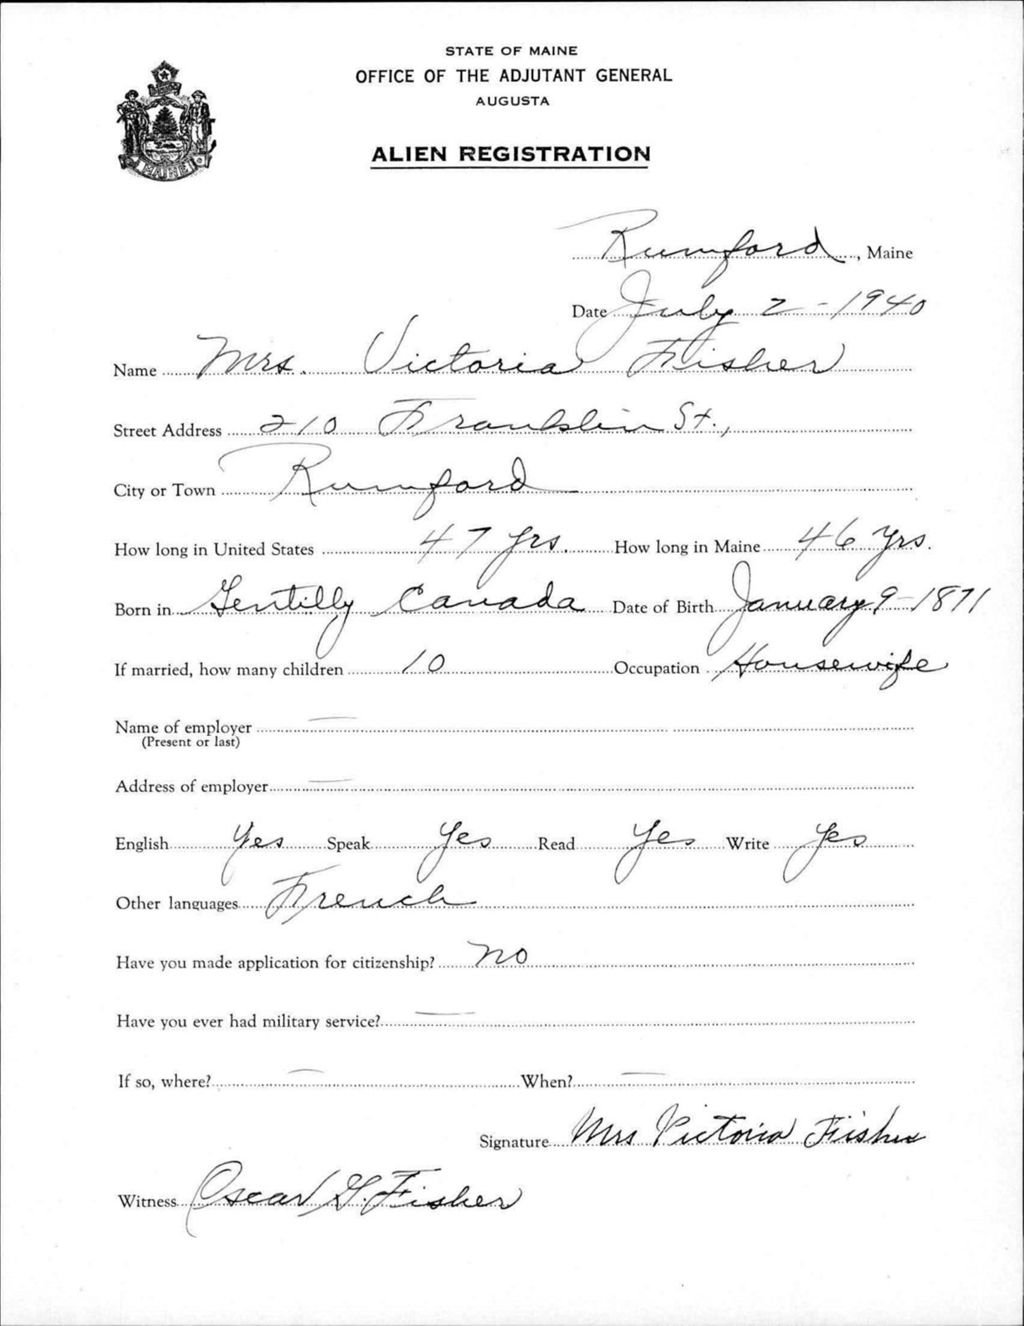 STATE OF MAINE
OFFICE OF THE ADJUTANT GENERAL
AUGUSTA
ALIEN REGISTRATION
MAINE
Rumford, Maine
Date July 2 - 1940
Name Mrs. Victoria Fisher
Street Address 210 Franklin St.,
City or Town Rumford
How long in United States 47 yrs. How long in Maine 46 Yrs.
Born in Gentilly Canada Date of Birth January 9 - 1871
If married, how many children 10 Occupation Housewife
Name of employer —
(Present or last)
Address of employer —
English Yes Speak Yes Read Yes Write Yes
Other languages French
Have you made application for citizenship? no
Have you ever had military service? —
If so, where? — When? —
Signature Mrs Victoria Fisher
Witness Oscar G. Fisher